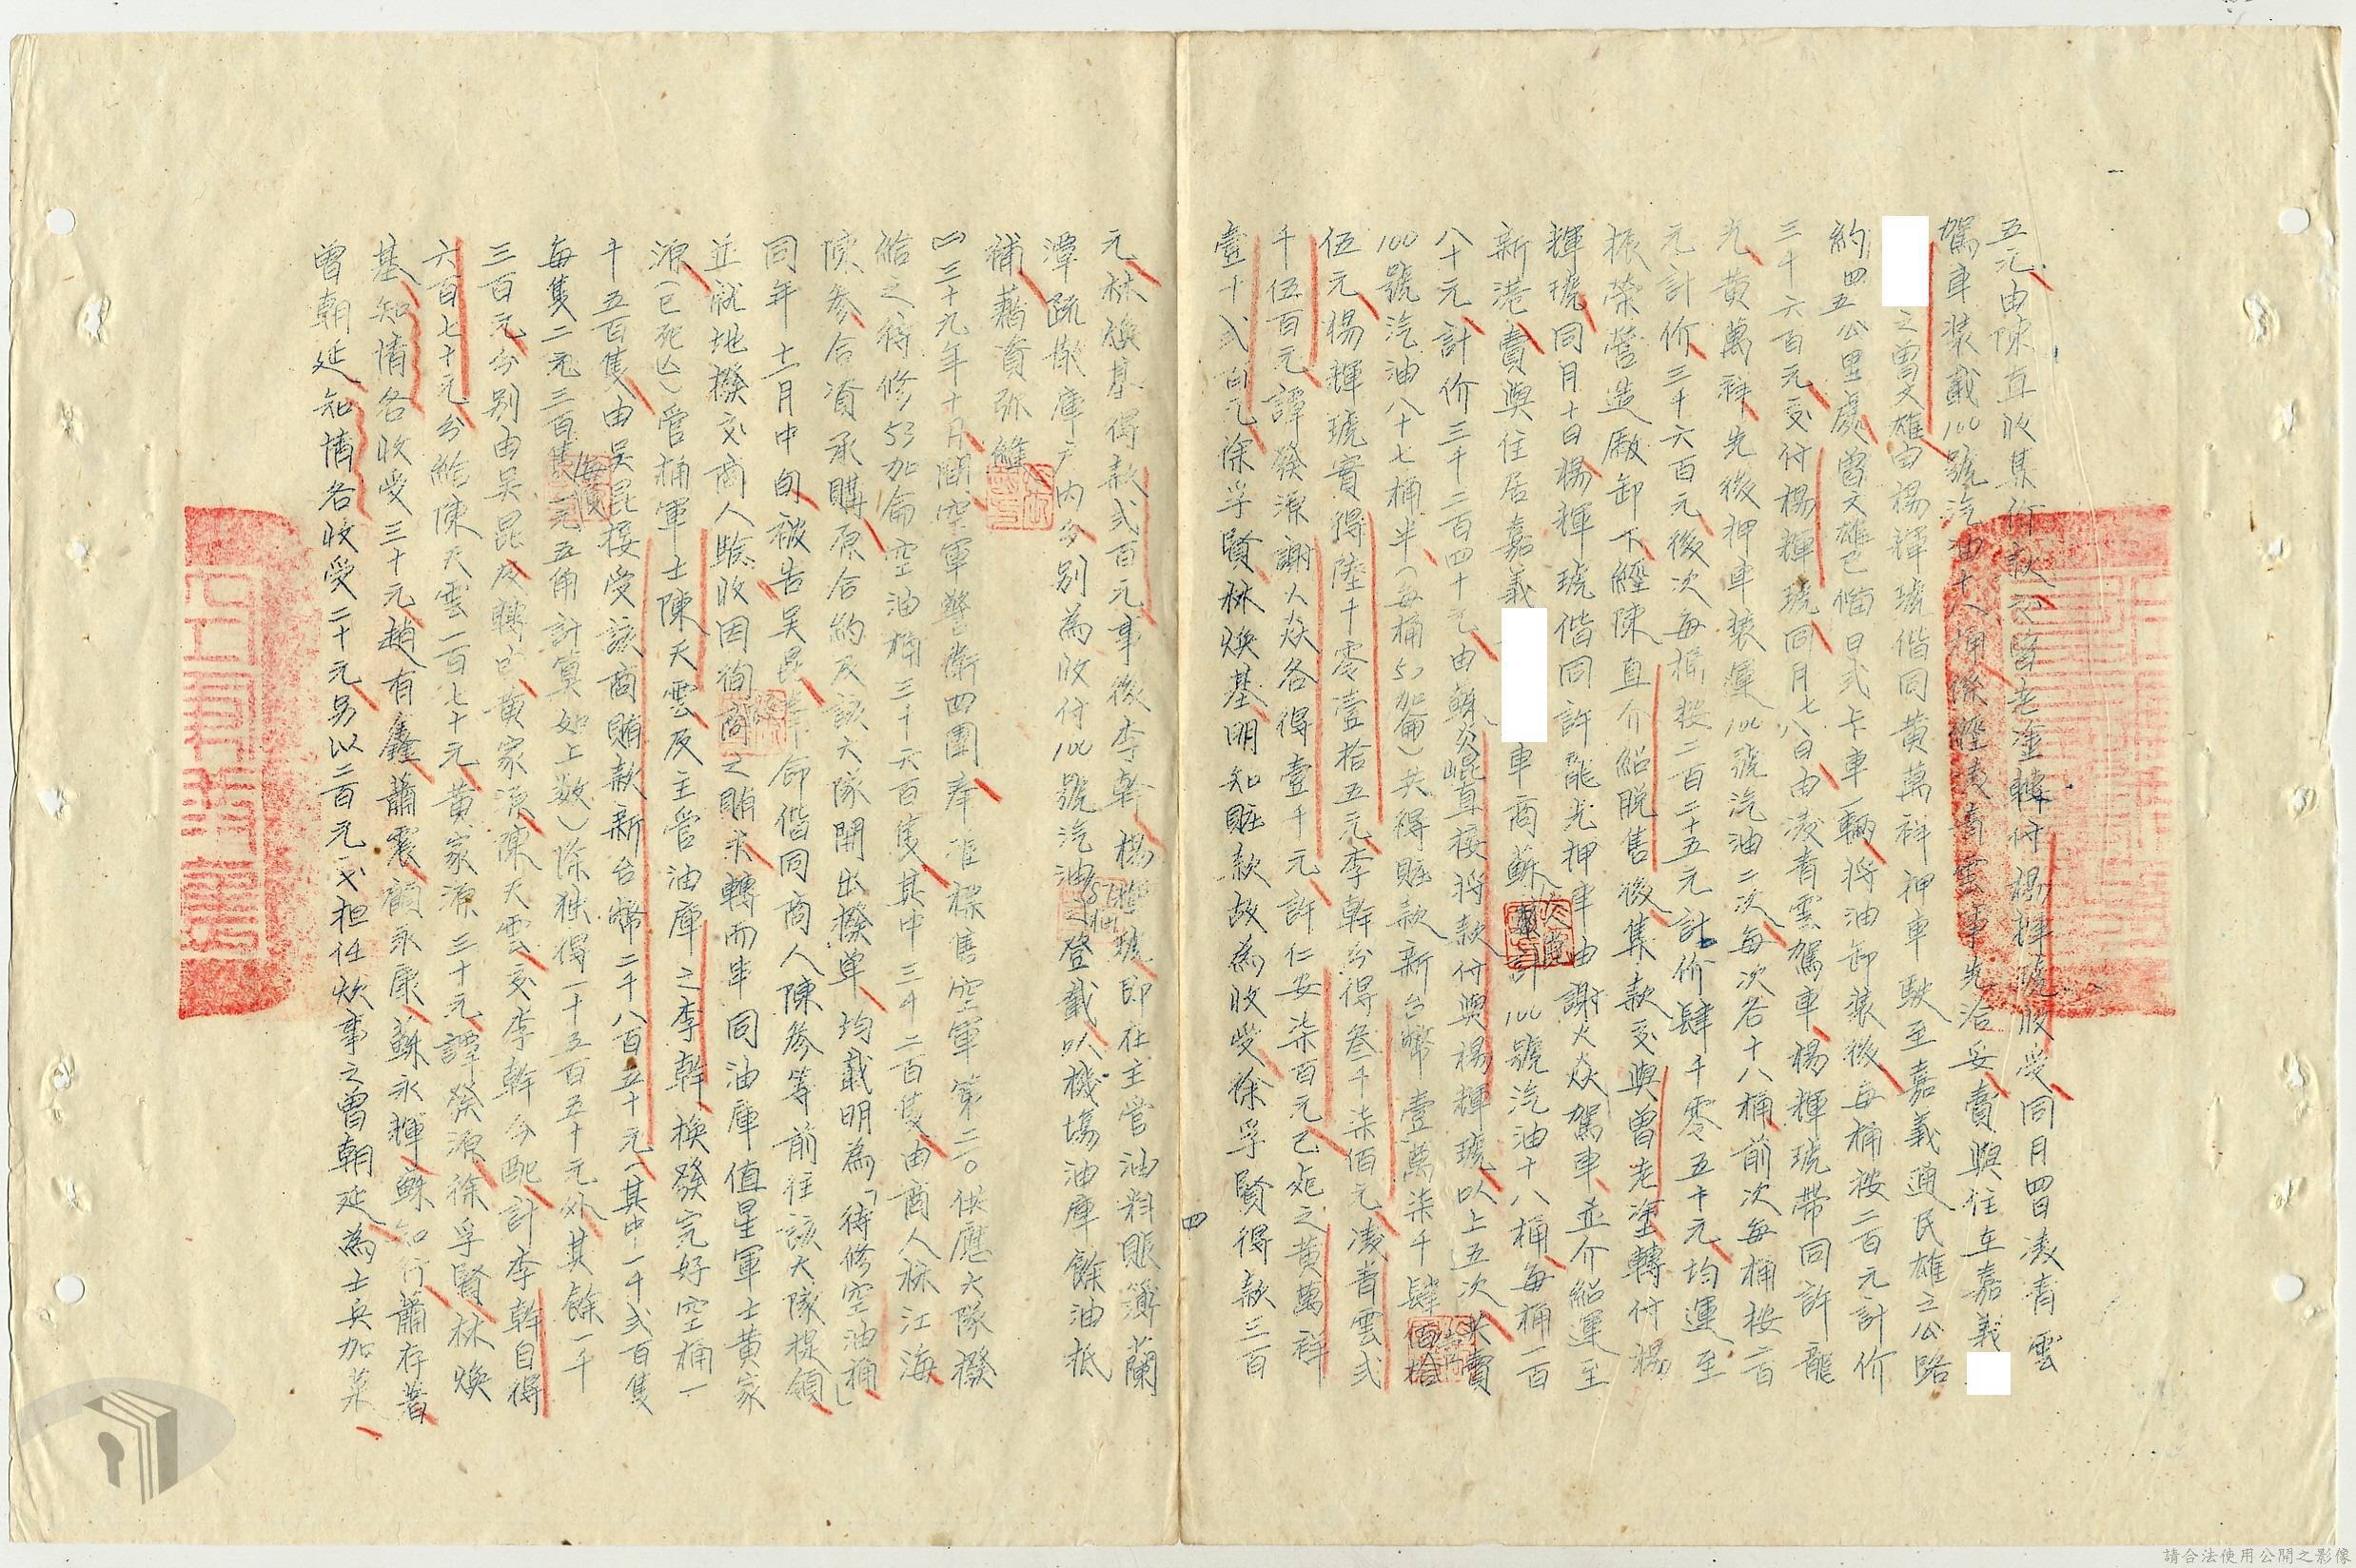 五元由陳直收集行款交曾老塗轉付楊輝琥收受同月四日凌青雲
駕車裝載100號汽油十八桶係經凌青雲事先洽妥賣與住在嘉義
之曾文雄由楊輝琥偕同黃萬祥押車駛至嘉義通民雄之公路
約四五公里處曾文雄已備日式卡車一輛將油卸裝後每桶按二百元計价
三千六百元交付楊輝琥同月七八日由凌青雲駕車楊輝琥帶同許龍
光黃萬祥先後押車裝運100號汽油二次每次各十八桶前次每桶按二百
元計价三千六百元後次每桶按二百二十五元計价肆千零五十元均運至
振榮營造廠卸下經陳直介紹脫售後集款交與曾老塗轉付楊
輝琥同月十日楊輝琥偕同許龍光押車由謝火炎駕車並介紹運至
新港賣與住居嘉義車商蘇計100號汽油十八桶每桶一百
八十元計价三千二百四十元由蘇崑直接將款付與楊輝琥以上五次共賣
100號汽油八十七桶半(每桶53加侖)共得賍款新台幣壹萬柒千肆佰拾
伍元楊輝琥實得陸千零壹拾五元李幹分得叁千柒佰元凌青雲弍
千伍百元譚發源謝火炎各得壹千元許仁安柒百元已死之黃萬祥
壹千弍百元徐孚賢林煥基明知賍款故為收受徐孚賢得款三百
四
元林煥基得款弍百元事後李幹楊輝琥即在主管油料賬簿蘭
潭疏散庫戶內分別為收付100號汽油87桶之登載以機場油庫餘油抵
補藉資弥縫
(二)三十九年十月間空軍警衛四團奉准標售空軍第二〇供應大隊撥
給之待修53加侖空油桶三千六百隻其中三千二百隻由商人林江海
陳參合資承購原合約及該大隊開出撥單均載明為「待修空油桶」
同年十二月中旬被告吳昆奉命偕同商人陳參等前往該大隊提領
並就地撥交商人驗收因徇商之賄求轉而串同油庫值星軍士黃家
源(已死亡)管桶軍士陳天雲及主管油庫之李幹換發完好空桶一
千五百隻由吳昆接受該商賄款新台幣二千八百五十元(其中一千弍百隻
每隻二元三百隻一元五角計算如上数)除独得一千五百五十元外其餘一千
三百元分別由吳昆及轉由黃家源陳天雲交李幹分配計李幹自得
六百七十元分給陳天雲一百七十元黃家源三十元譚發源徐孚賢林煥
基知情各收受三十元趙有鑫蕭震顧永康蘇永輝蘇知行蕭存著
曾朝延知情各收受二十元另以二百元交担任炊事之曾朝延為士兵加菜